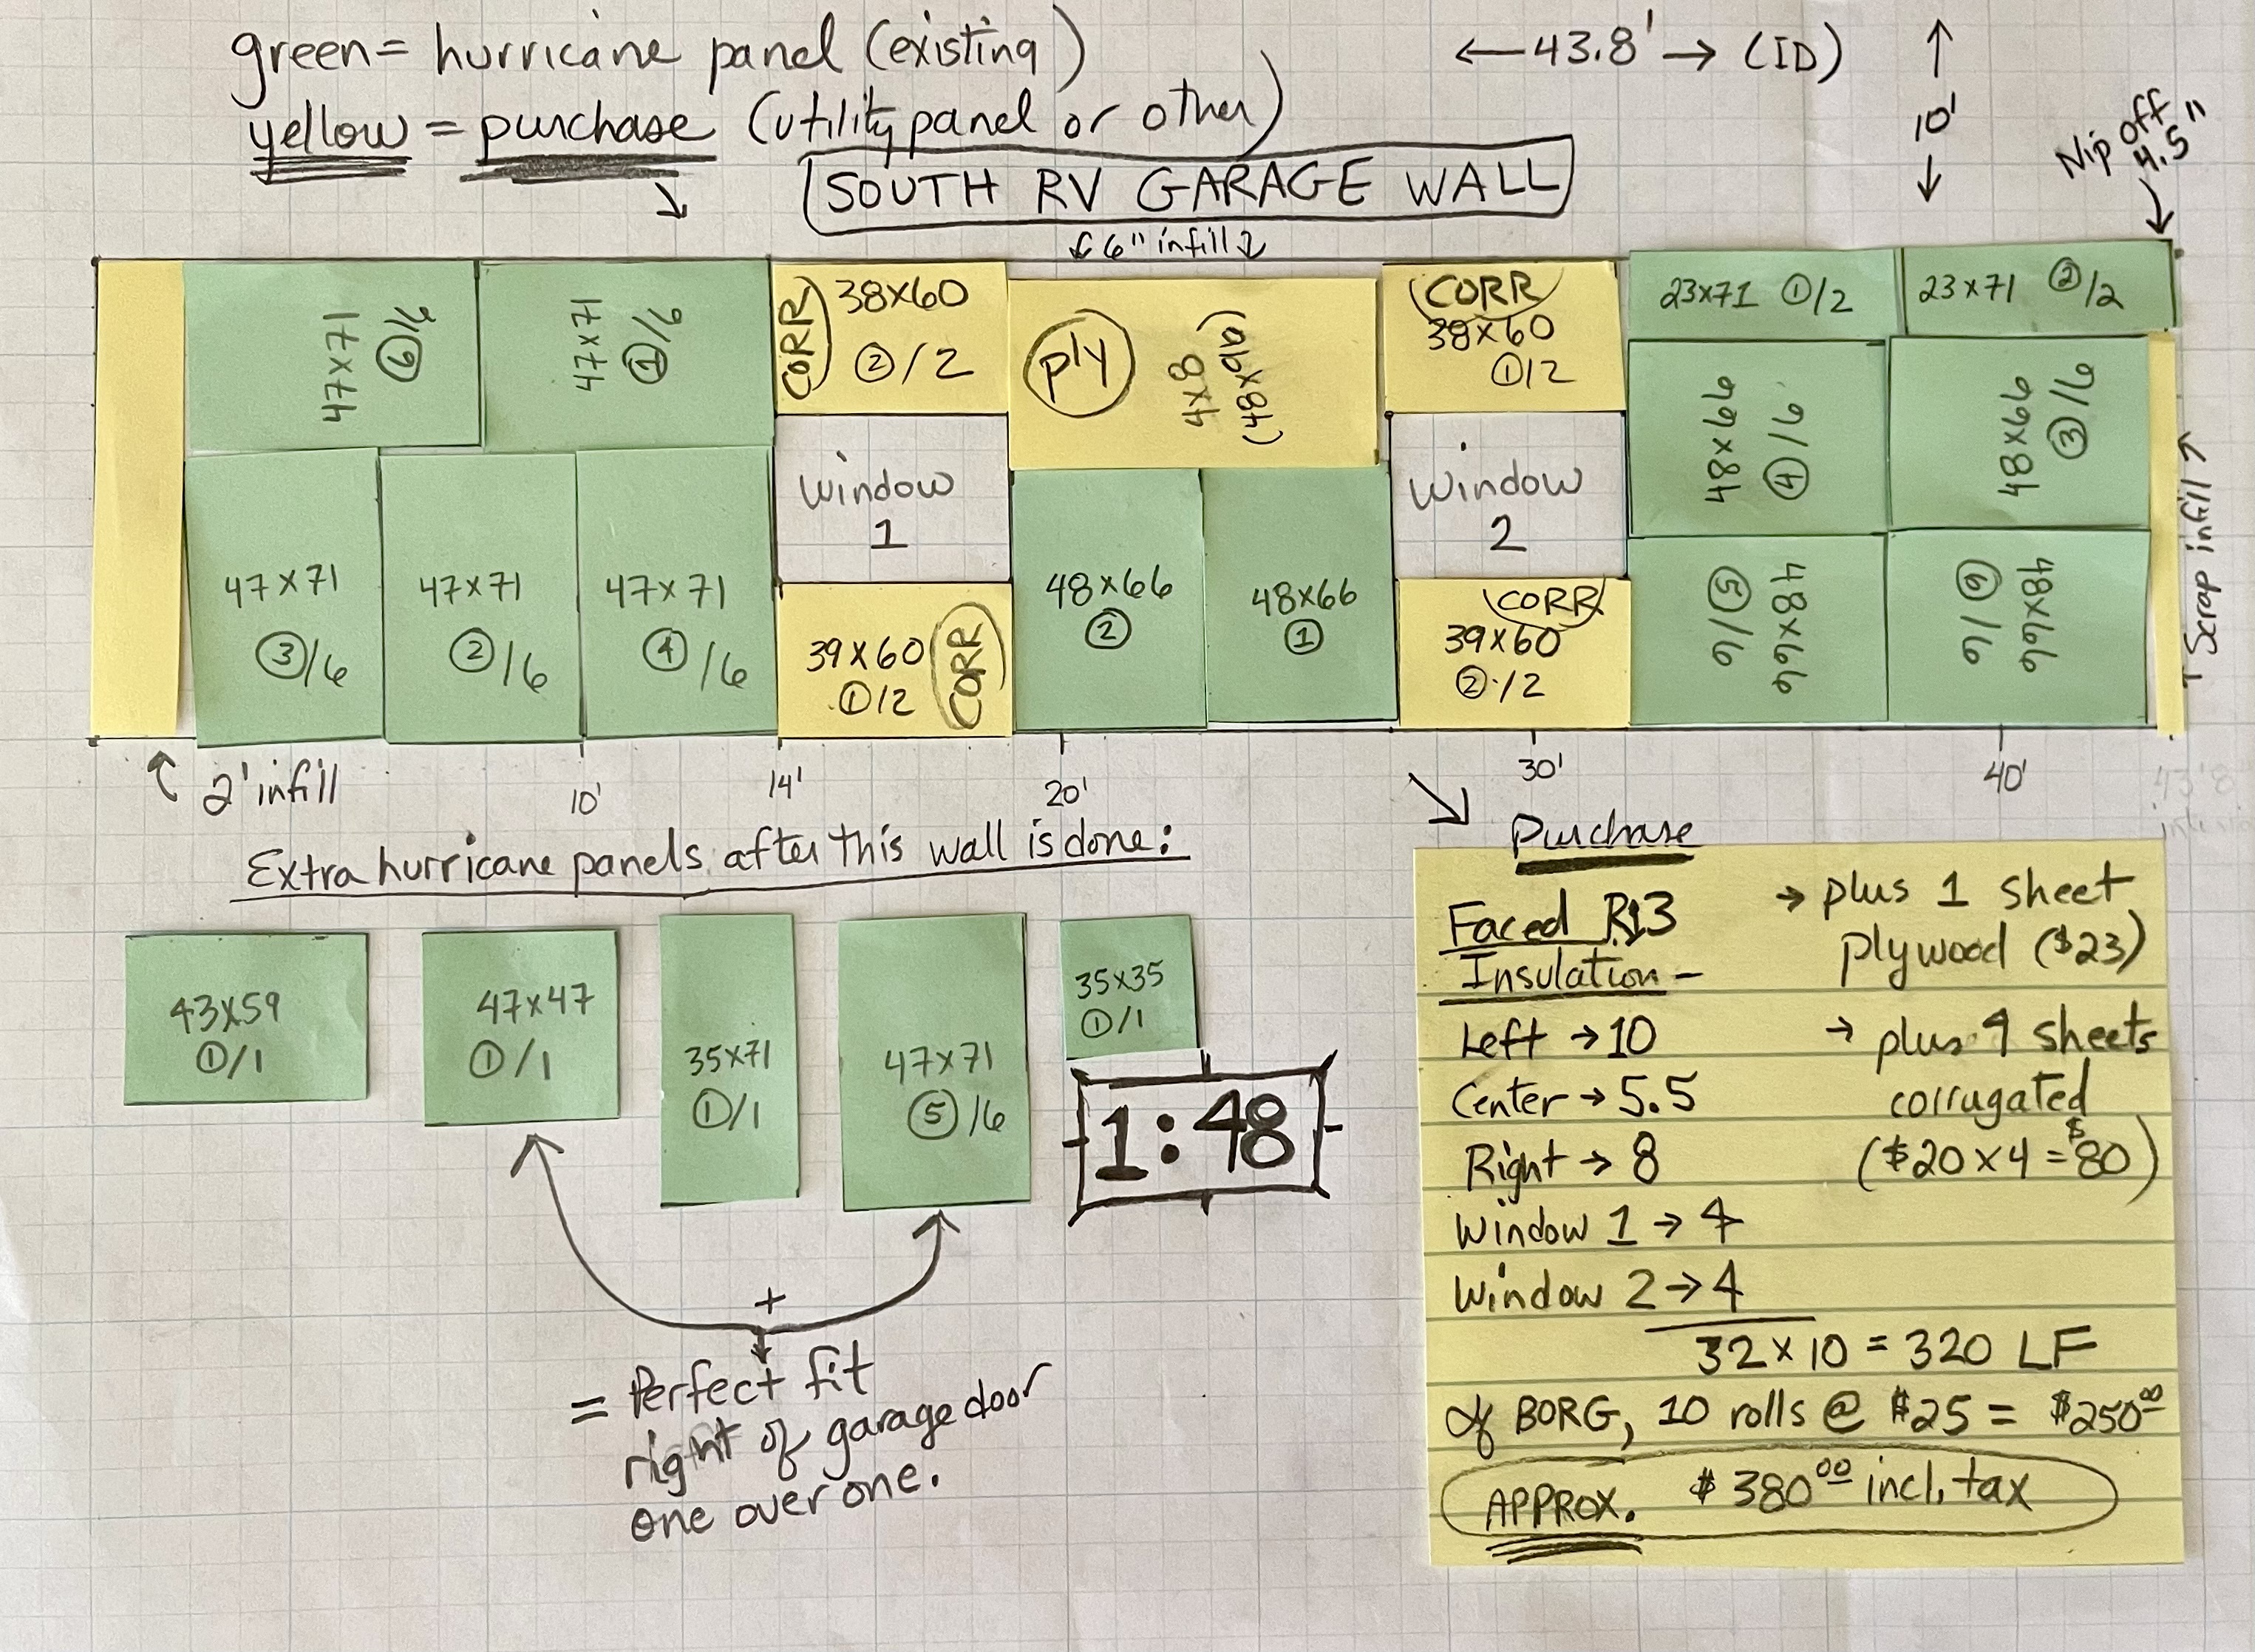 green = hurricane panel (existing)
yellow = purchase (utility panel or other)
← 43.8' → (ID)
10'
Nip off
4.5"
SOUTH RV GARAGE WALL
6" infill
47x71
6/6
47x71
1/6
CORR
38x60
2/2
ply
4x8
(48x96)
CORR
38x60
1/2
23x71 1/2
23x71 2/2
48x66
4/6
48x66
3/6
Window
1
Window
2
47x71
3/6
47x71
2/6
47x71
4/6
39x60
1/2
CORR
48x66
2
48x66
1
CORR
39x60
2/2
48x66
5/6
48x66
6/6
Scrap infill →
2' infill
10'
14'
20'
30'
40'
43'8"
Extra hurricane panels after this wall is done:
43x59
1/1
47x47
1/1
35x71
1/1
47x71
5/6
35x35
1/1
1:48
+
= Perfect fit
right of garage door
one over one.
Purchase
Faced R13
Insulation –
Left → 10
Center → 5.5
Right → 8
Window 1 → 4
Window 2 → 4
→ plus 1 sheet
plywood ($23)
→ plus 4 sheets
corrugated
($20 x 4 = $80)
32 x 10 = 320 LF
of BORG, 10 rolls @ $25 = $250.00
APPROX. $380.00 incl. tax